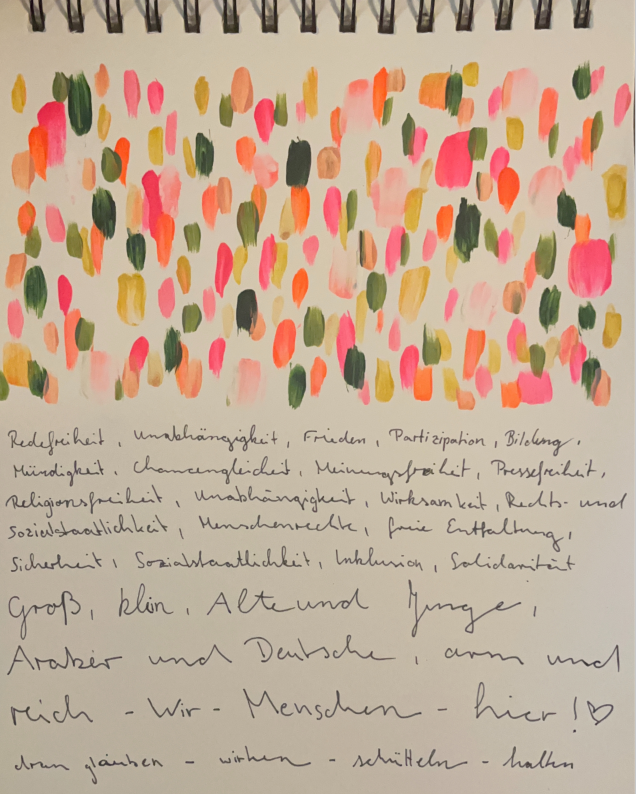 Redefreiheit, Unabhängigkeit, Frieden, Partizipation, Bildung,
Mündigkeit, Chancengleicheit, Meinungsfreiheit, Pressefreiheit,
Religionsfreiheit, Unabhängigkeit, Wirksamkeit, Rechts- und
Sozialstaatlichkeit, Menschenrechte, freie Entfaltung,
Sicherheit, Sozialstaatlichkeit, Inklusion, Solidarität
Groß, klein, Alte und Junge,
Araber und Deutsche, arm und
reich - Wir - Menschen - hier! ♡
dran glauben - wirken - schütteln - halten